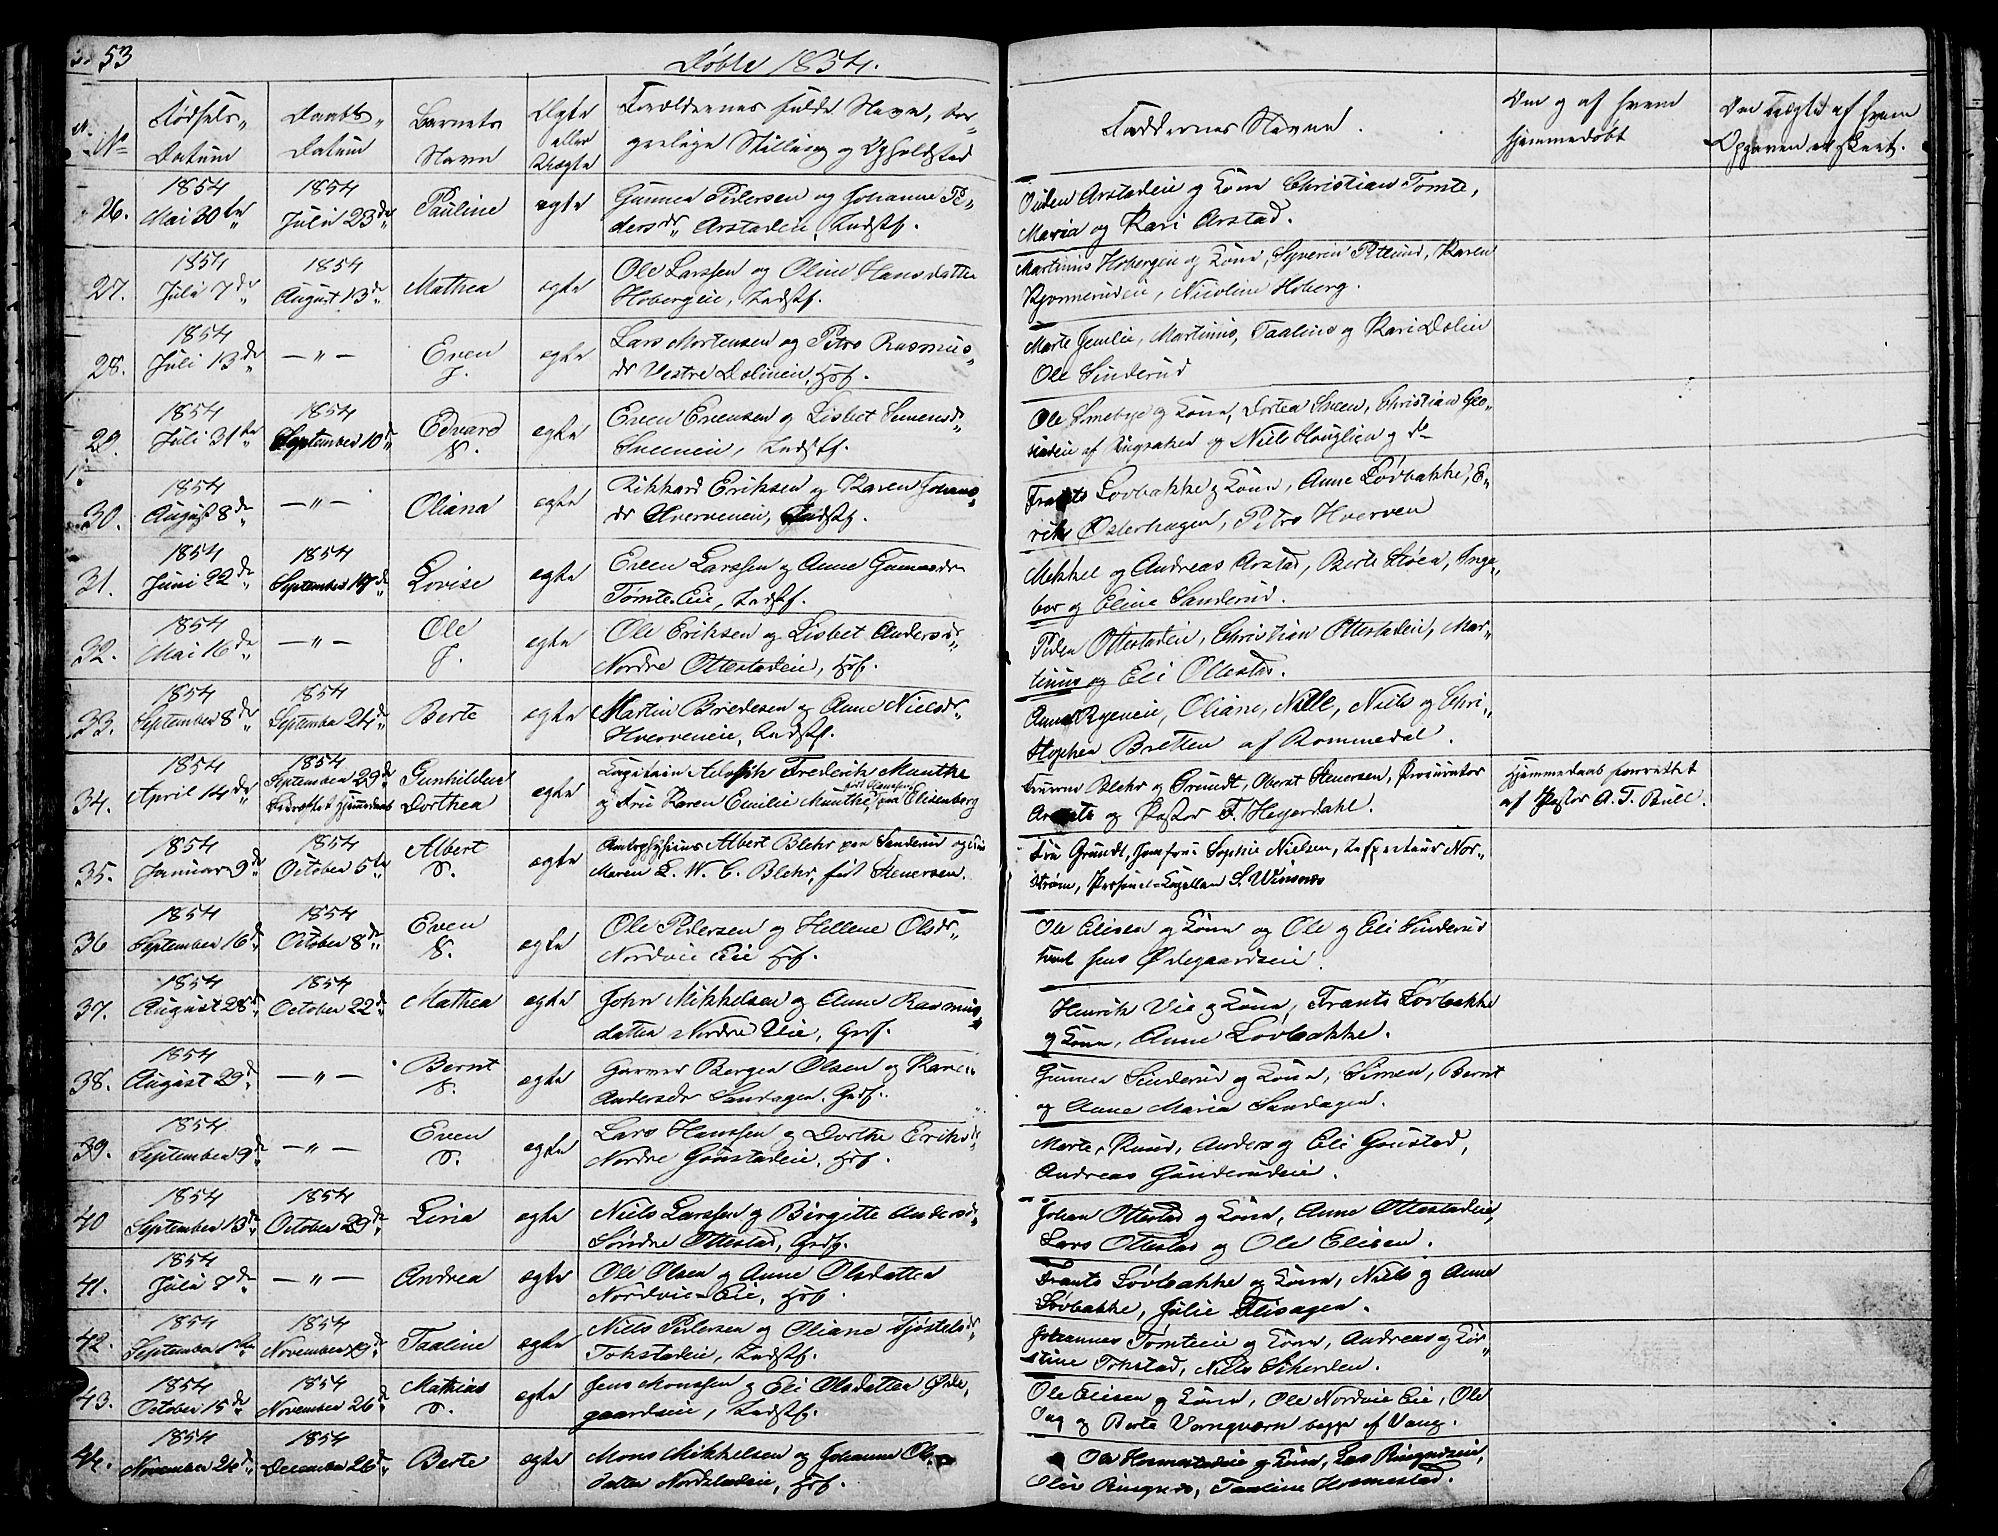 53
Døbte 1854.
No
Fødsels-
Datum
Daabs-
Datum
Barnets
Navn
Ægte
eller
Uægte
Forældrenes fulde Navn, bor-
gerlige Stilling og Opholdsted
Faddernes Navne.
Om og af hvem
hjemmedøbt
Om uægte af hvem
Opgaven er skeet.
26.
1854
Mai 30te
1854
Juli 23de
Pauline
ægte
Gunner Pedersen og Johanne Pe-
dersdr Arstadeie, Indstf.
Arstadeie og Kone Christian Tomte,
Maria og Kari Arstad.
27.
1854
Juli 7de
1854
August 13de
Mathea
ægte
Ole Larssen og Oline Hansdatter
Hobergeie, Indstf.
Martinus Hobergeie og Kone, Syverin Petlund, Karen
Kjonnerudeie, Nicoline Hoberg.
28.
1854
Juli 13de
— " —
Even
J.
ægte
Lars Mortensen og Petro Rasmus-
dr Vestre Dælineie, Hsf.
Marte Jemlie, Martinus, Taaline og Kari Dælin
Ole Sinderud
29.
1854
Juli 31te
1854
September 10de
Edvard
N.
ægte
Even Evensen og Lisbet Simensdr
Sveeneie, Indstf.
Ole Smebye og Kone, Dortea Sveen, Christian Glo-
stadeie af Ringsaker og Niels Houglien og do
30.
1854
August 8de
— " —
Oliana
ægte
Rikkard Eriksen og Karen Johans-
dr Hverveneie, Indstf.
Frants Lovbakke og Kone, Anne Lovbakke, E-
rik Østerhagen, Petro Hverven
31.
1854
Juni 22de
1854
September 17de
Lovise
ægte
Even Larssen og Anne Gunnersdr
Tomte Eie, Indstf.
Mikkel og Andreas Arstad, Berte Støen, Inge-
bor og Eline Sanderud.
32.
1854
Mai 16de
— " —
Ole
J.
ægte
Ole Eriksen og Lisbet Andersdr
Nordre Ottestadeie, Hsf.
Peder Ottestadeie, Christian Ottestadeie, Mar-
tinus og Eli Ottestad.
33.
1854
September 8de
1854
September 24de
Berte
ægte
Martin Bredesen og Anne Nielsdr
Hverveneie, Indstf.
Anne Ryeneie, Oliane, Nille, Niels og Chri-
stopher Bretten af Rommedal.
34.
1854
April 14de
1854
September 29de
bekræftet Hjemmedaab
Gunhilda
Dorthea
ægte
Capitain Adolph Frederik Munthe
og Frue Karen Emilie Munthe, født Hansen, paa Elisenberg
Fruerne Blehr og Grundt, Oberst Stenersen, Procurator
og Pastor F. Heyerdahl.
Hjemmedaab forrettet
af Pastor A. T. Bull.
35.
1854
Januar 9de
1854
October 5te
Albert
S.
ægte
Albert Blehr paa Sanderud og Frue
Maren L. W. C. Blehr, født Stenersen.
Fru Grundt, Jomfrue Sophie Nielsen, Inspecteur Nor-
strøm, Personel-Capellan S. Winsnes
36
1854
September 16de
1854
October 8de
Even
N.
ægte
Ole Pedersen og Hellene Olsdr
Nordvie Eie Hsf.
Ole Elisen og Kone og Ole og Eli Sinderud
samt Jens Ødegaardseie.
37.
1854
August 28de
1854
October 22de
Mathea
ægte
John Mikkelsen og Anne Rasmus-
datter Nordre Vie, Grdf.
Henrik Vie og Kone, Frants Lovbakke
og Kone, Anne Lovbakke.
38.
1854
August 29de
— " —
Bernt
N.
ægte
Garmer Bergen Olsen og Karen
Andersdr Sandagen. Grdf.
Gunner Sinderud og Kone, Simen, Bernt
og Anne Maria Sandagen.
39.
1854
September 9de
— " —
Even
S.
ægte
Lars Hanssen og Dorthe Eriksdr
Nordre Gonstadeie, Hsf.
Marte, Knud, Anders og Eli Gonstad,
Andreas Gunderudeie.
40
1854
September 13de
1854
October 29de
Lina
ægte
Niels Larssen og Birgitte Andersdr
Søndre Ottestad, Grdf.
Johan Ottestad og Kone, Anne Ottestadeie,
Lars Ottestad og Ole Elisen.
41.
1854
Juli 8de
— " —
Andrea
ægte
Ole Olsen og Anne Olsdatter
Nordvie-Eie, Hsf.
Frants Lovbakke og Kone, Niels og Anne
Lovbakke, Julie Flisagen.
42.
1854
September 8de
1854
November 19de
Taaline
ægte
Niels Pedersen og Oliane Tjostelsdr
Tokstadeie, Indstf.
Johannes Tomteie og Kone, Andreas og Kir-
stine Tokstad, Niels Skierden.
43.
1854
October 15de
1854
November 26de
Mathias
S.
ægte
Jens Monssen og Eli Olsdatter Øde-
gaardseie, Indstf.
Ole Elisen og Kone, Ole Nordvie Eie, Ole
Dag og Berte Vangværn begge af Vang.
44.
1854
November 24de
1854
December 26de
Berte
ægte
Mons Mikkelsen og Johanne Ols-
datter Nordstadeie, Hsf.
Ole Hommstadeie og Kone, Lars Ringnæseie,
Oline Ringnæs, Taaline Hommestad.